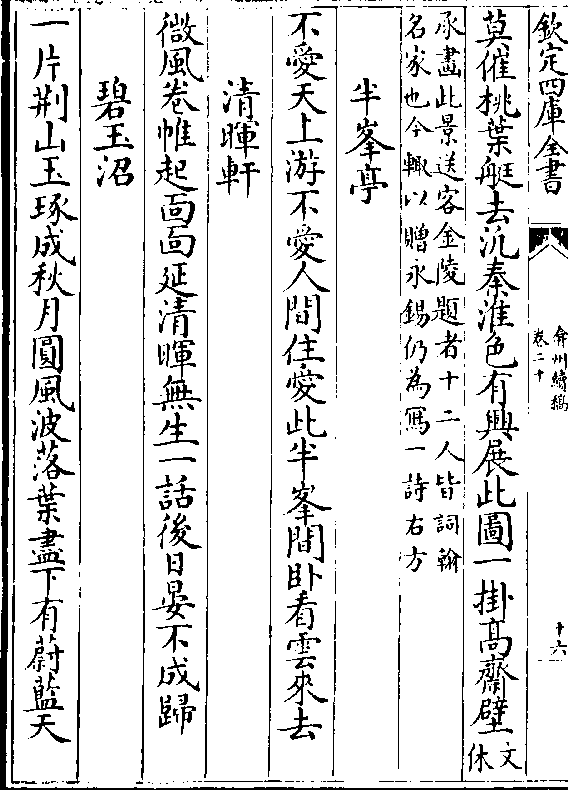 欽定四庫全書
弇州續稿
卷二十
十六
莫催桃葉艇去汎秦淮色有興展此圖一掛髙齋壁文
休
承畫此景送客金陵題者十二人皆詞翰
名家也今輙以贈永錫仍為寫一詩右方
半峯亭
不愛天上游不愛人間住愛此半峯間卧看雲來去
清暉軒
微風卷帷起面面延清暉無生一話後日晏不成歸
碧玉沼
一片荆山玉琢成秋月圓風波落葉盡下有蔚藍天